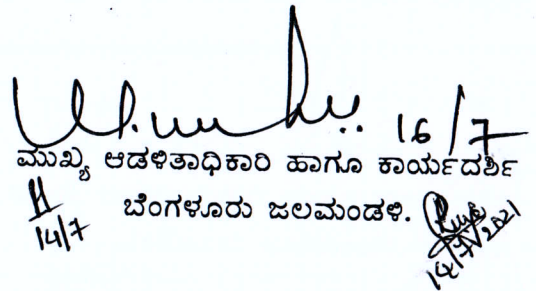 16/7
ಮುಖ್ಯ ಆಡಳಿತಾಧಿಕಾರಿ ಹಾಗೂ ಕಾರ್ಯದರ್ಶಿ
ಬೆಂಗಳೂರು ಜಲಮಂಡಳಿ.
14/7
14/7/2021